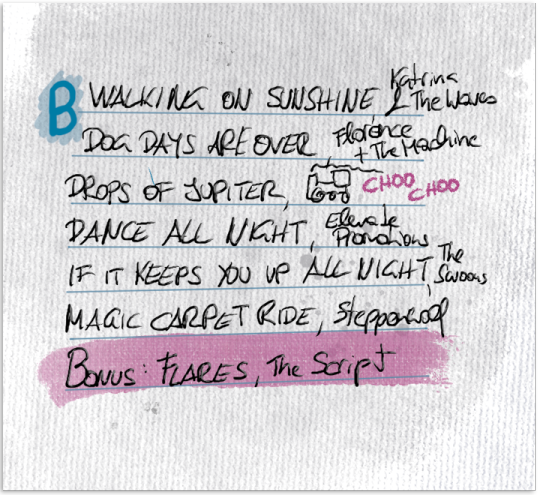 B
WALKING ON SUNSHINE, Katrina & The Waves
DOG DAYS ARE OVER Florence + The Machine
DROPS OF JUPITER, CHOO CHOO
DANCE ALL NIGHT, Elevate Promotions
IF IT KEEPS YOU UP ALL NIGHT, The Swoons
MAGIC CARPET RIDE, Steppenwolf
BONUS: FLARES, The Script